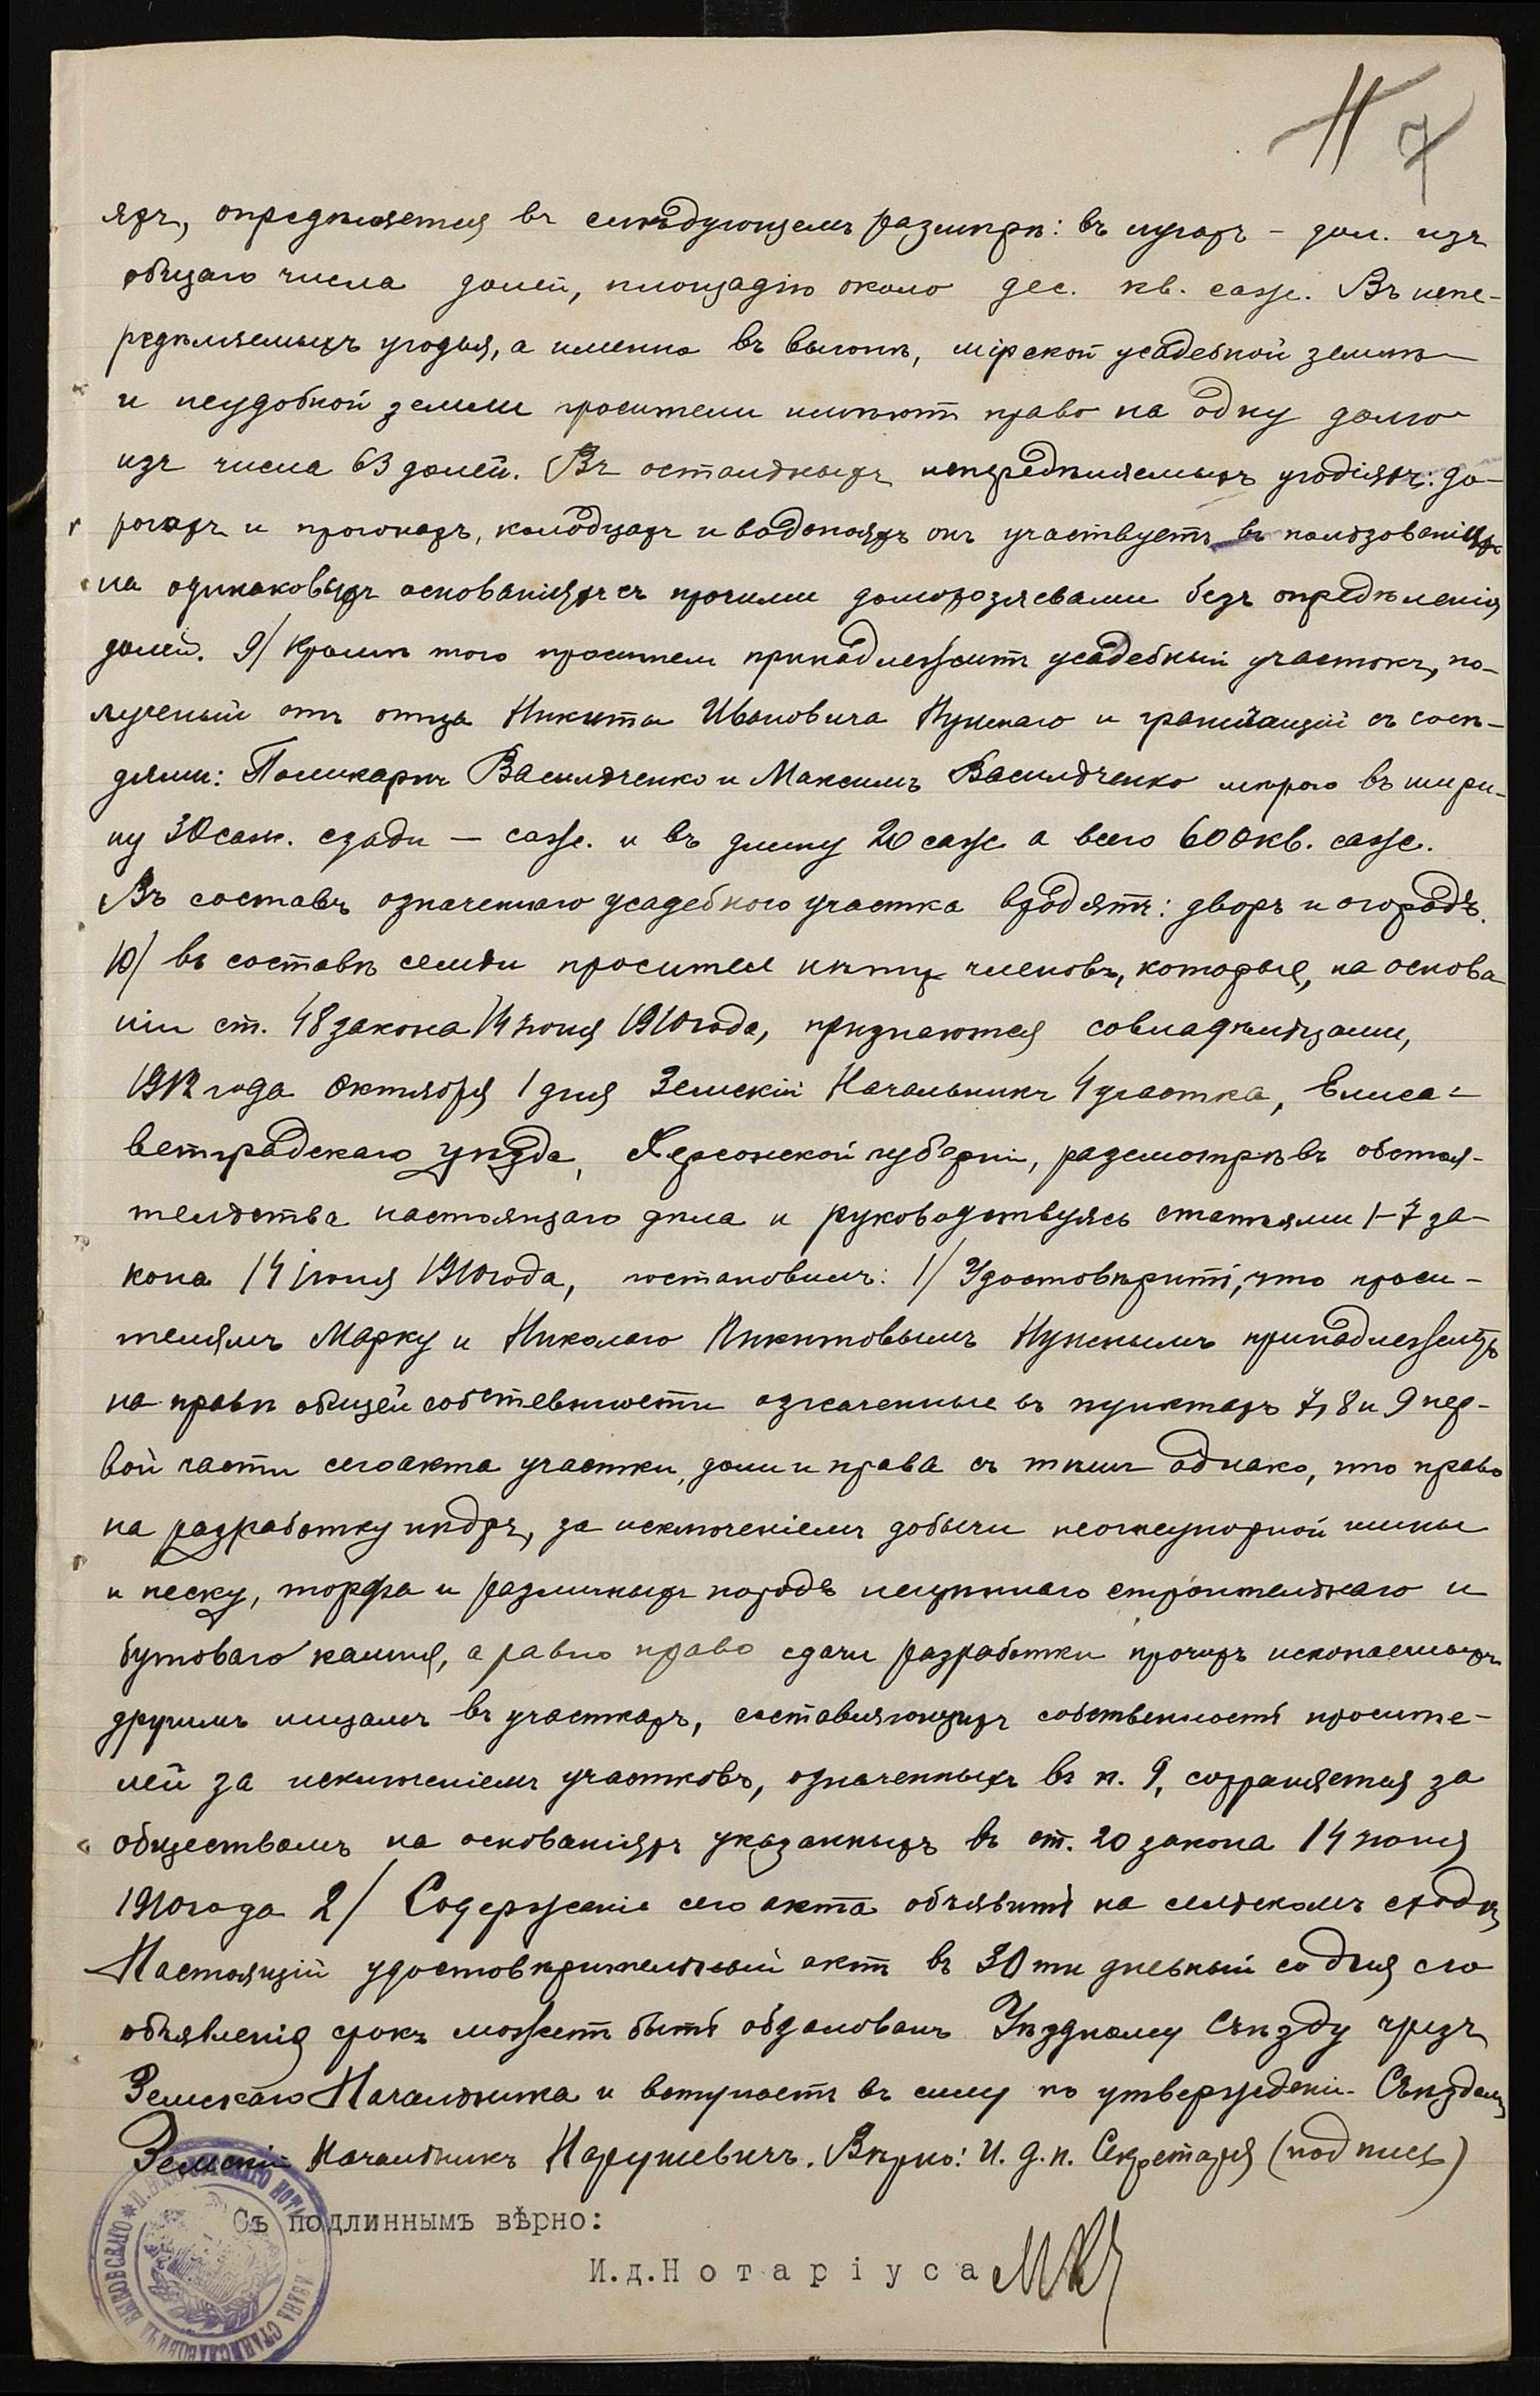 11 7
яхъ, опредѣляется въ слѣдующемъ размѣрѣ: въ лугахъ – дол. изъ
общаго числа долей, площадію около дес. кв. саж. Въ непе-
редѣляемыхъ угодья, а именно въ выгонѣ, мірской усадебной землѣ
и неудобной земли просители имѣютъ право на одну долю
изъ числа 63 долей. Въ остальныхъ непередѣляемыхъ угодіяхъ: до-
рогахъ и прогонахъ, колодцахъ и водопояхъ онъ участвуетъ въ пользованіи
на одинаковыхъ основаніяхъ съ прочими домохозяевами безъ опредѣленія
долей. 9/ Кромѣ того просители принадлежитъ усадебный участокъ, по-
лученый отъ отца Никита Ивановича Нужнаго и граничащій съ сосѣ-
дями: Поликарпъ Васильченко и Максимъ Васильченко мѣрою въ шири-
ну 30 саж. сзади — саж. и въ длину 20 саж. а всего 600 кв. саж.
Въ составъ означеннаго усадебнаго участка входятъ: дворъ и огородъ.
10/ въ составѣ семьи просителя нѣтъ членовъ, которые, на основа-
ніи ст. 48 закона 14 іюня 1910 года, признаются совладѣльцами,
1912 года Октября 1 дня Земскій Начальникъ 4 участка, Елиса-
ветградскаго уѣзда, Херсонской губерніи, разсмотрѣвъ обстоя-
тельства настоящаго дѣла и руководствуясь статьями 1-7 за-
кона 14 іюня 1910 года, постановилъ: 1/ Удостовѣрить, что проси-
телямъ Марку и Николаю Никитовымъ Нужнымъ принадлежитъ
на правѣ общей собственности означенные въ пунктахъ 7, 8 и 9 пер-
вой части сего акта участки, доли и права съ тѣмъ однако, что право
на разработку нѣдръ, за исключеніемъ добычи неогнеупорной глины
и песку, торфа и различныхъ породъ нецѣннаго строительнаго и
бутоваго камня, а равно право сдачи разработки прочихъ ископаемыхъ
другимъ лицамъ въ участкахъ, составляющихъ собственность просите-
лей за исключеніемъ участковъ, означенныхъ въ п. 9, сохраняется за
обществомъ на основаніяхъ указанныхъ въ ст. 20 закона 14 іюня
1910 года 2/ Содержаніе сего акта объявить на сельскомъ сходѣ
Настоящій удостовѣрительный актъ въ 30 ти дневный со дня его
объявленія срокъ можетъ быть обжалованъ Уѣздному Съѣзду чрезъ
Земскаго Начальника и вступаетъ въ силу по утвержденіи Съѣздомъ
Земскій Начальникъ Нарушевичъ. Вѣрно: И. д. п. Секретаря (подпись)
Съ подлиннымъ вѣрно:
И.д.Нотаріуса